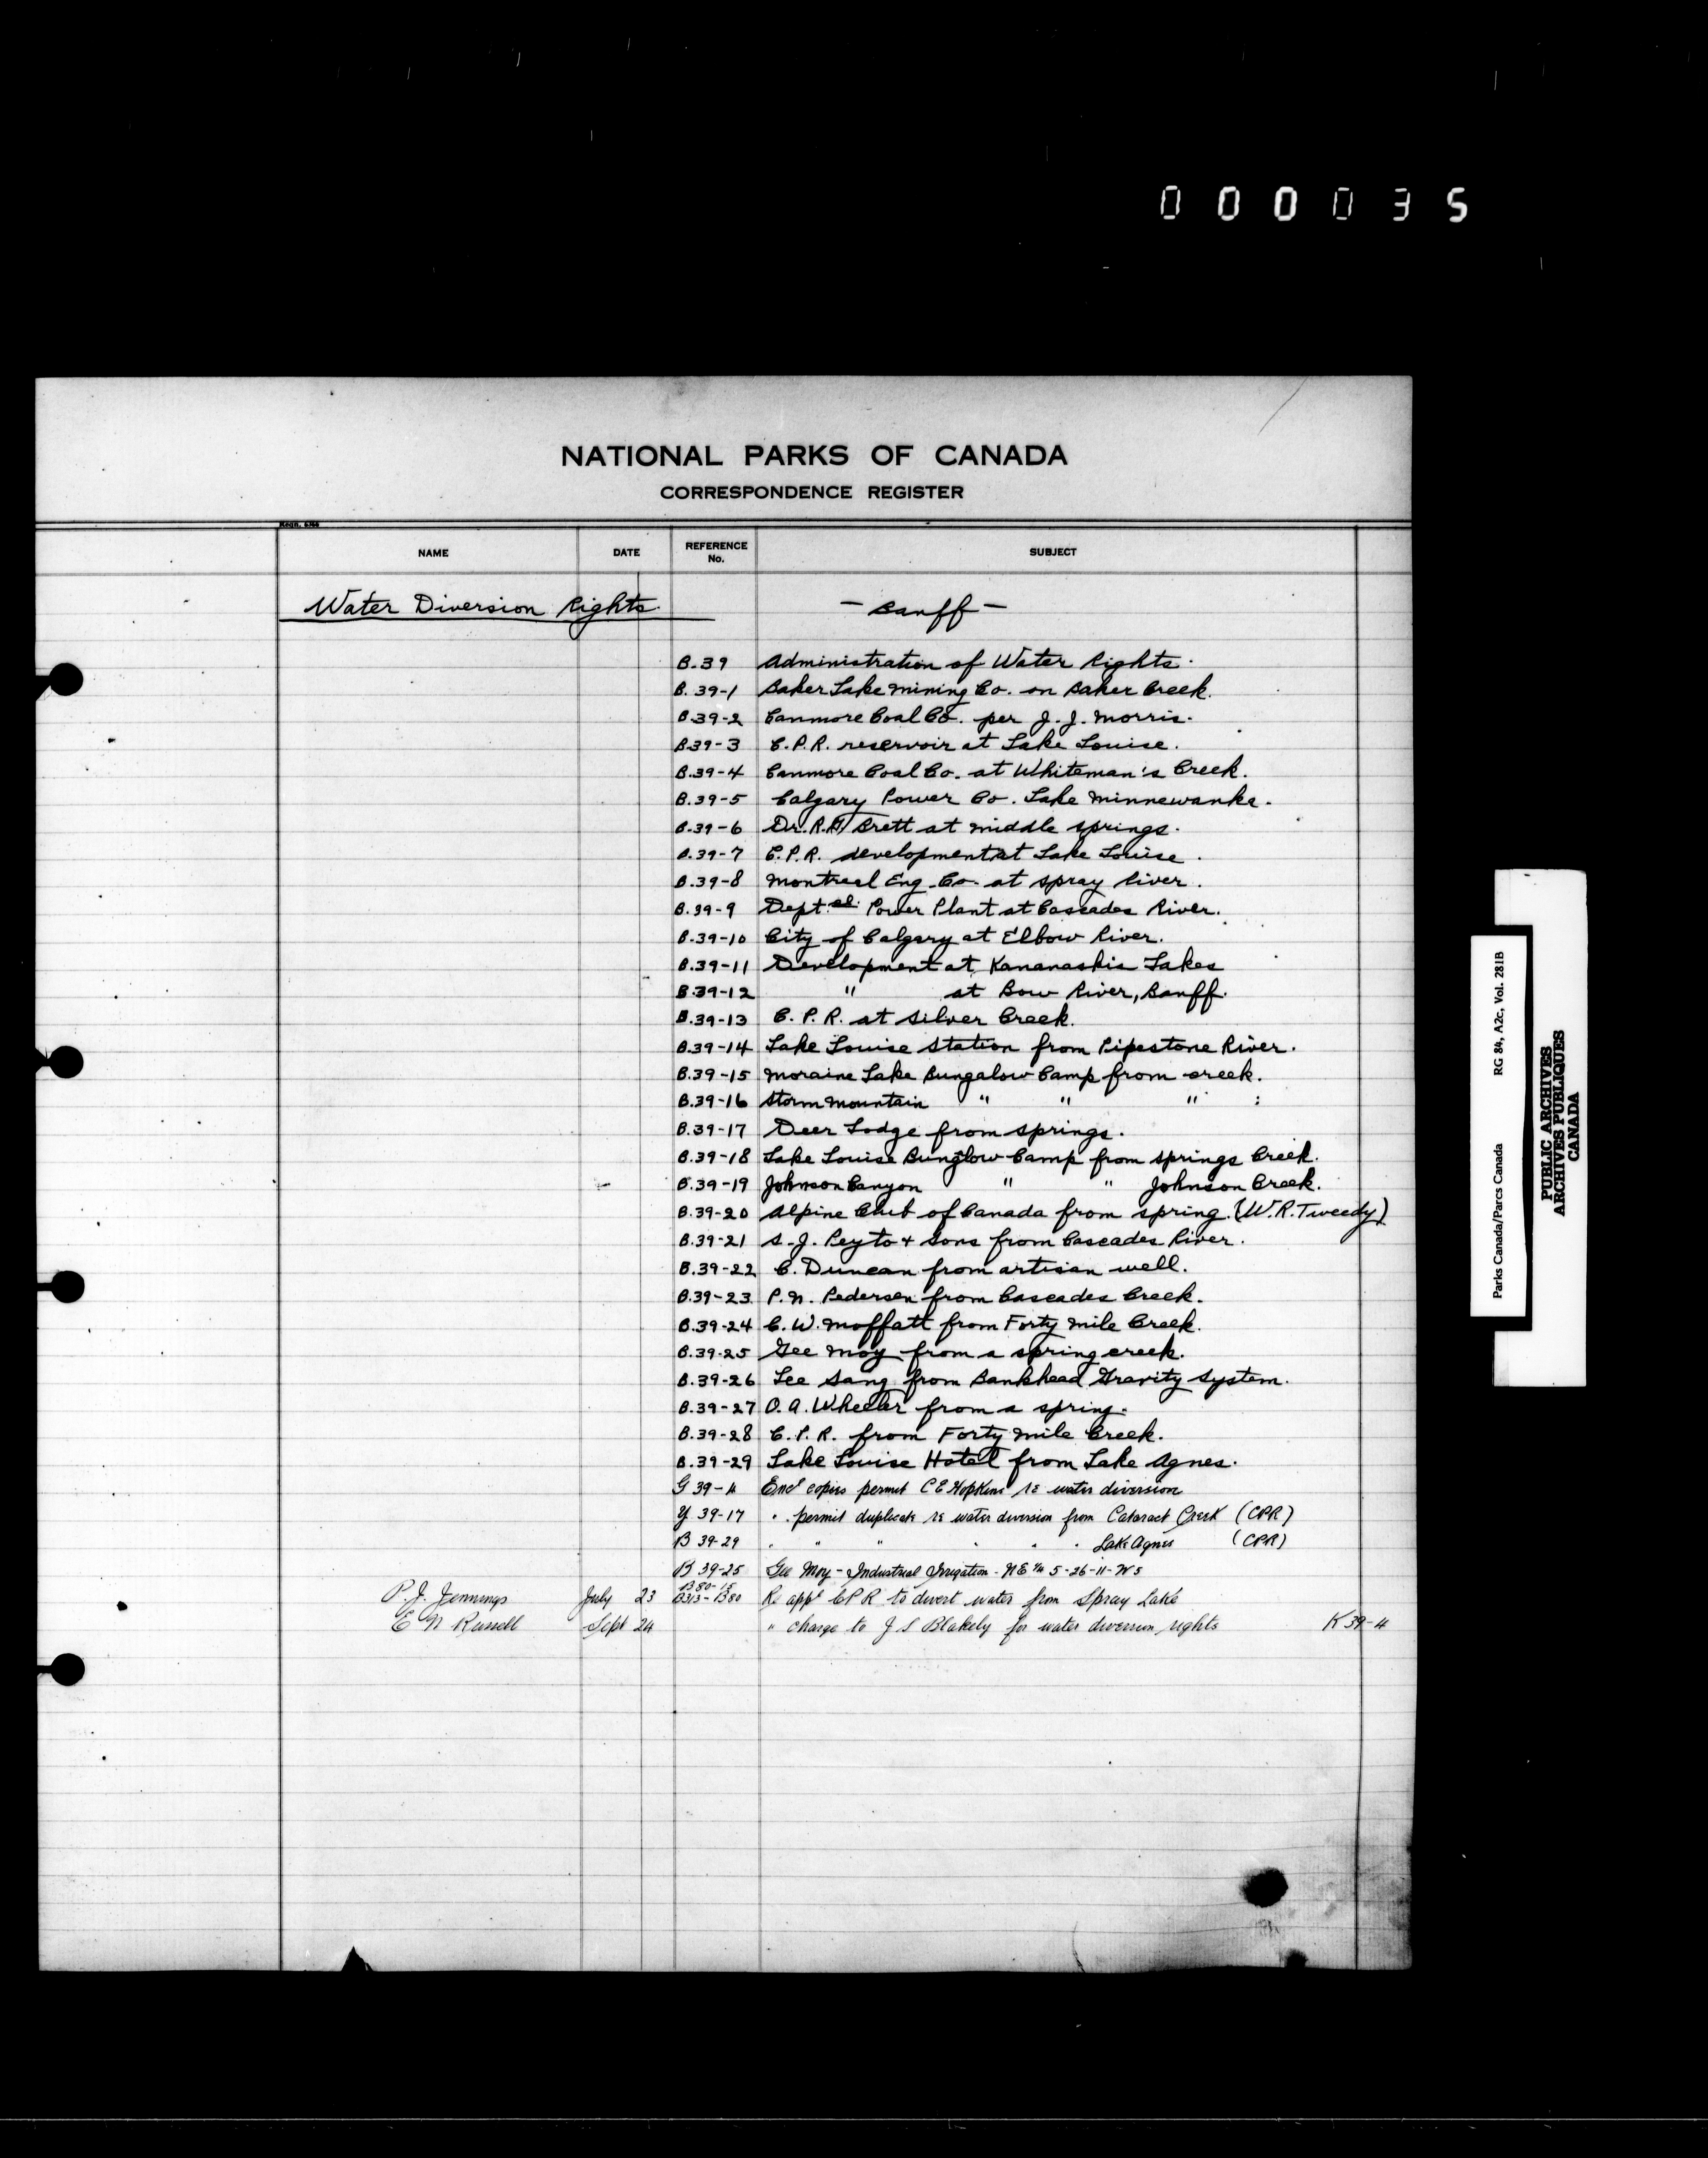 000035
NATIONAL PARKS OF CANADA
CORRESPONDENCE REGISTER
NAME DATE REFERENCE No. SUBJECT
Water Diversion Rights - Banff -
B.39 Administration of Water Rights.
B.39-1 Baker Lake Mining Co. on Baker Creek.
B.39-2 Canmore Coal Co. per J. J. Morris.
B.39-3 C.P.R. reservoir at Lake Louise.
B.39-4 Canmore Coal Co. at Whiteman's Creek.
B.39-5 Calgary Power Co. Lake Minnewanka.
B.39-6 Dr. R.G. Brett at middle springs.
B.39-7 C.P.R. development at Lake Louise.
B.39-8 Montreal Eng. Co. at Spray River.
B.39-9 Dept.al. Power Plant at Cascades River.
B.39-10 City of Calgary at Elbow River.
B.39-11 Development at Kananaskis Lakes
B.39-12 " at Bow River, Banff.
B.39-13 C. P. R. at Silver Creek.
B.39-14 Lake Louise Station from Pipestone River.
B.39-15 Moraine Lake Bungalow Camp from creek.
B.39-16 Storm Mountain " " " :
B.39-17 Deer Lodge from springs.
B.39-18 Lake Louise Bunglow Camp from springs Creek.
B.39-19 Johnson Canyon " " Johnson Creek.
B.39-20 Alpine Club of Canada from spring. (W.R. Tweedy)
B.39-21 S. J. Peyto + Sons from Cascades River.
B.39-22 C. Duncan from artisan well.
B.39-23 P. N. Pedersen from Cascades Creek.
B.39-24 C. W. Moffatt from Forty Mile Creek.
B.39-25 Gee Moy from a spring creek.
B.39-26 Lee Sang from Bankhead Gravity System.
B.39-27 O. A. Wheeler from a spring.
B.39-28 C. P. R. from Forty Mile Creek.
B.39-29 Lake Louise Hotel from Lake Agnes.
G 39-4 Encl copies permit C E Hopkins re water diversion
Y 39-17 " permit duplicate re water diversion from Cataract Creek (CPR)
B 39-29 " " " " " " Lake Agnes (CPR)
B 39-25 Gee Moy - Industrial Irrigation - NE 1/4 5-26-11-W5
B80-15
P. J. Jennings July 23 B313-B80 Re appl CPR to divert water from Spray Lake
E N Russell Sept 24 " charge to J S Blakely for water diversion rights K 39-4
Parks Canada/Parcs Canada RG 84, A2c, Vol. 281B
PUBLIC ARCHIVES
ARCHIVES PUBLIQUES
CANADA